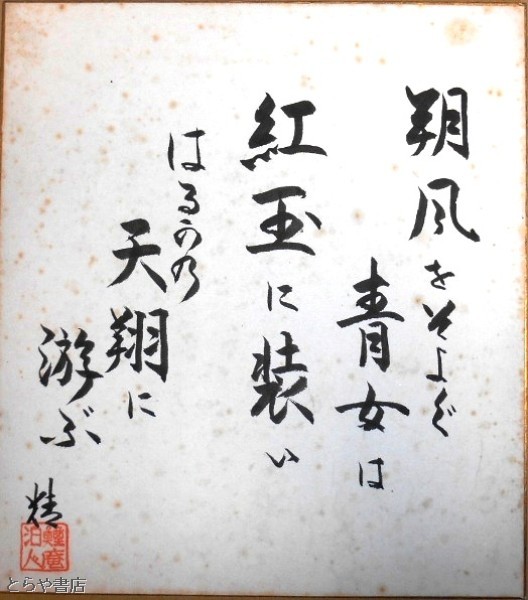 朔風をそよぐ
青女は
紅玉に装い
はるかの
天翔に
游ぶ
精
とらや書店